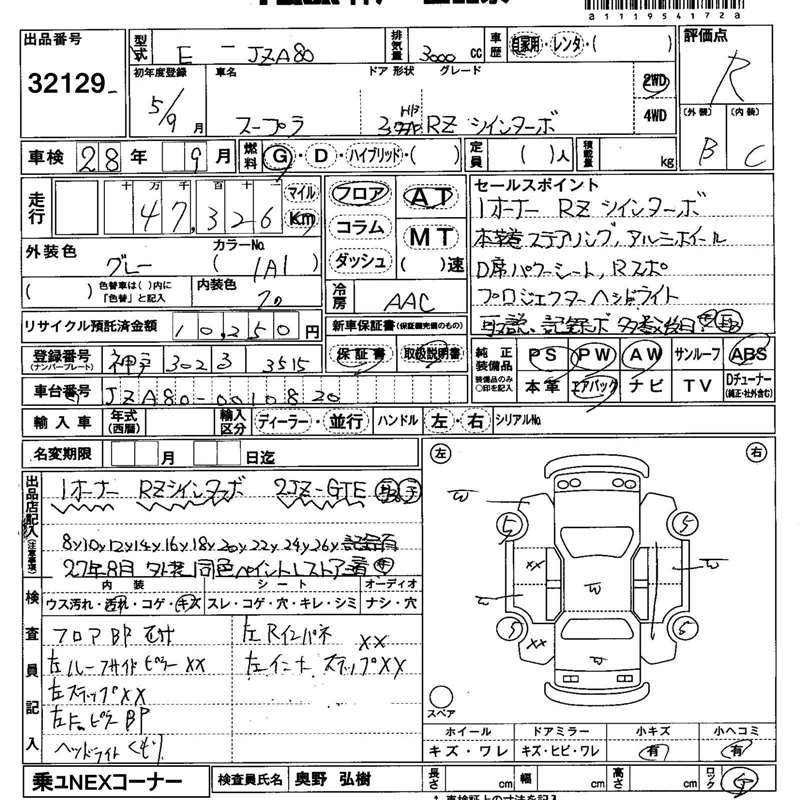 a111954172a
出品番号 型式 E - JZA80 排気量 3000 cc 車歴 自家用・レンタ・( ) 評価点
32129 R
初年度登録 車名 ドア 形状 グレード
5/9月 スープラ 3 HB RZ ツインターボ 2WD 4WD
(外装) (内装)
B C
車検 28年 9月 燃料 G・D・ハイブリッド・( ) 定員 ( )人 積載量 kg
走行 十万千百十 47,326 マイル Km フロア コラム ダッシュ AT MT ( )速
セールスポイント
1オーナー RZ ツインターボ
本革巻ステアリング,アルミホイール
D席パワーシート,Rスポ
プロジェクターヘッドライト
取説,記録ボ
外装色 カラーNo.
グレー (1A1)
( ) 色替車は( )内に「色替」と記入 内装色
冷房 AAC
リサイクル預託済金額 10,250円 新車保証書(保証継続のもの)
保証書 取扱説明書
登録番号 (ナンバープレート) 神戸 302 3515
純正装備品 装備品のみ○印を記入
PS PW AW サンルーフ ABS
本革 エアバック ナビ TV Dチューナー (純正・社外含む)
車台番号 JZA80-0010820
輸入車 年式(西暦) 輸入区分 ディーラー・並行 ハンドル 左・右 シリアルNo.
名変期限 月 日迄
出品店記入(注意事項)
1オーナー RZツインターボ 2JZ-GTE
8y10y12y14y16y18y20y22y24y26y 記録有
27年8月 外装 同色ペイントレストア済
検査員記入
内装 シート オーディオ
ウス汚れ・汚れ・コゲ・キズ スレ・コゲ・穴・キレ・シミ ナシ・穴
フロアBP
左ルーフサイドピラーXX
左ステップXX
左Fピラー BP
ヘッドライト くもり
左Rインパネ XX
左インナーステップXX
左 右
W
5 5
XX W W
W
5 5
XX W
スペア
ホイール ドアミラー 小キズ 小ヘコミ
キズ・ワレ キズ・ヒビ・ワレ 有 有
乗ユNEXコーナー 検査員氏名 奥野 弘樹 長さ cm 幅 cm 高さ cm ロック